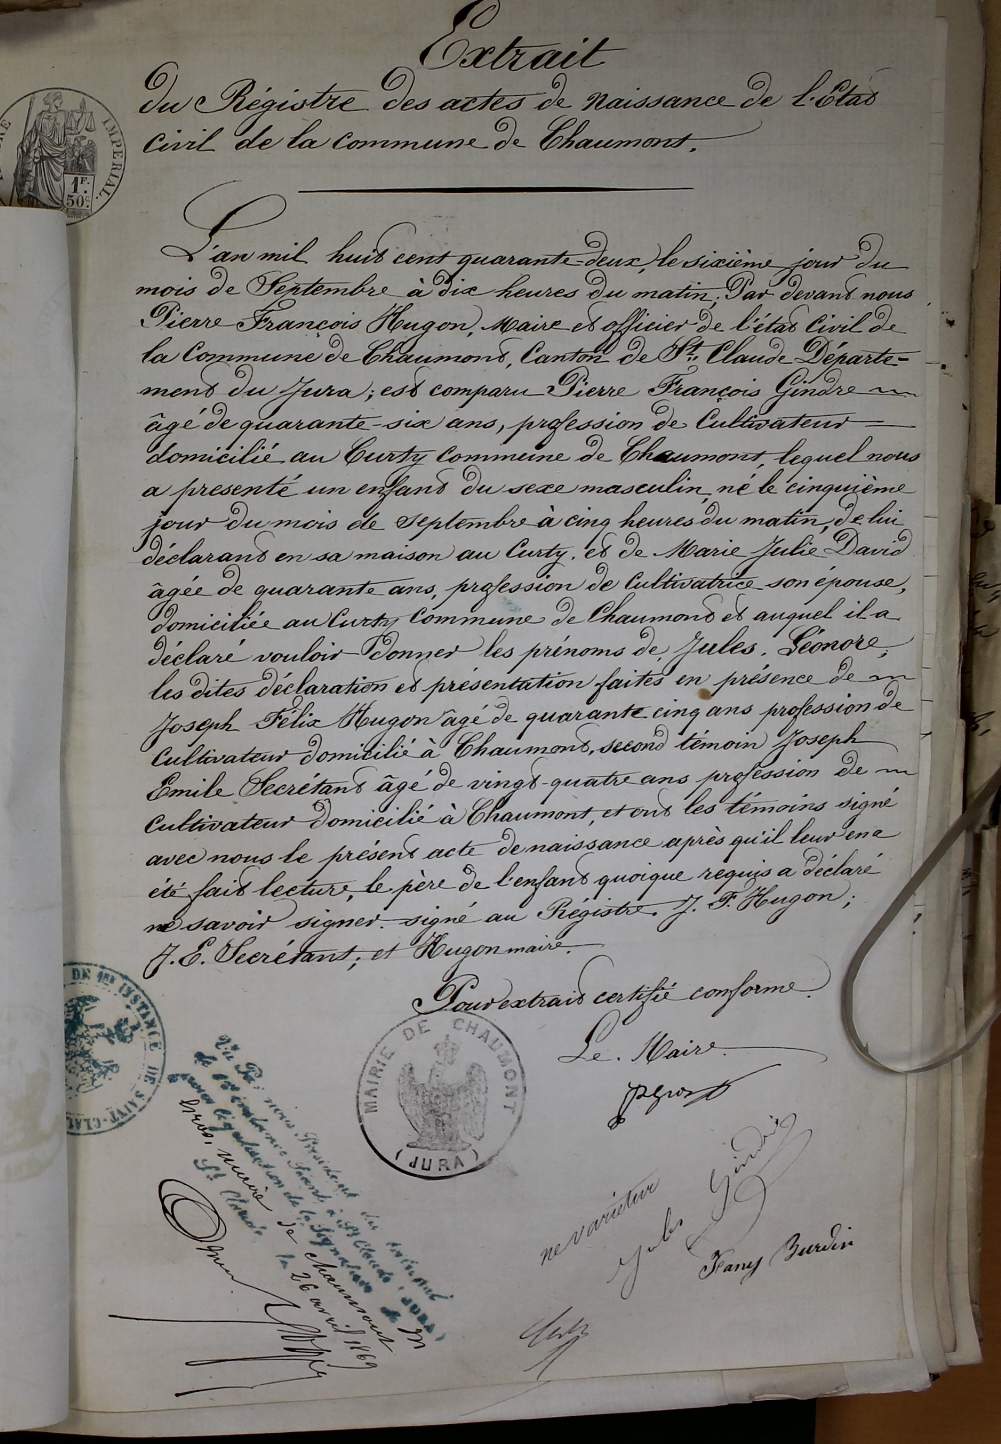 Extrait
du Régistre des actes de naissance de l'État
civil de la commune de Chaumont.
IMPERIAL.
1F.
50c.
L'an mil huit cent quarante-deux, le sixième jour du
mois de Septembre à dix heures du matin; Par devant nous
Pierre François Hugon, Maire et officier de l'état Civil de
la Commune de Chaumont, Canton de St. Claude Départe=
ment du Jura; est comparu Pierre François Gindre
âgé de quarante-six ans, profession de Cultivateur
domicilié au Curty commune de Chaumont, lequel nous
a presenté un enfant du sexe masculin, né le cinquième
jour du mois de Septembre à cinq heures du matin, de lui
déclarant en sa maison au Curty. et de Marie Julie David
âgée de quarante ans, profession de Cultivatrice son épouse,
domiciliée au Curty Commune de Chaumont et auquel il a
déclaré vouloir donner les prénoms de Jules. Léonore;
les dites déclaration et présentation faites en présence de
Joseph Félix Hugon âgé de quarante cinq ans profession de
Cultivateur domicilié à Chaumont, second témoin Joseph
Emile Secrétant âgé de vingt-quatre ans profession de
Cultivateur domicilié à Chaumont, et ont les témoins signé
avec nous le présent acte de naissance après qu'il leur en a
été fait lecture, le père de l'enfant quoique requis a déclaré
ne savoir signer. signé au Régistre. J. F. Hugon;
J. E. Secrétant; et Hugon maire.
Pour extrait certifié conforme.
Le. Maire.
DE 1re INSTANCE DE SAINT-CLAU
MAIRIE DE CHAUMONT
(JURA)
Vu Par nous Président du tribunal
de 1re instance Séant à St Claude (JURA)
pour légalisation de la Signature de M
Gros, maire de Chaumont
St Claude le 26 avril 1869
ne varietur
Jules Gindre
Fany Burdin